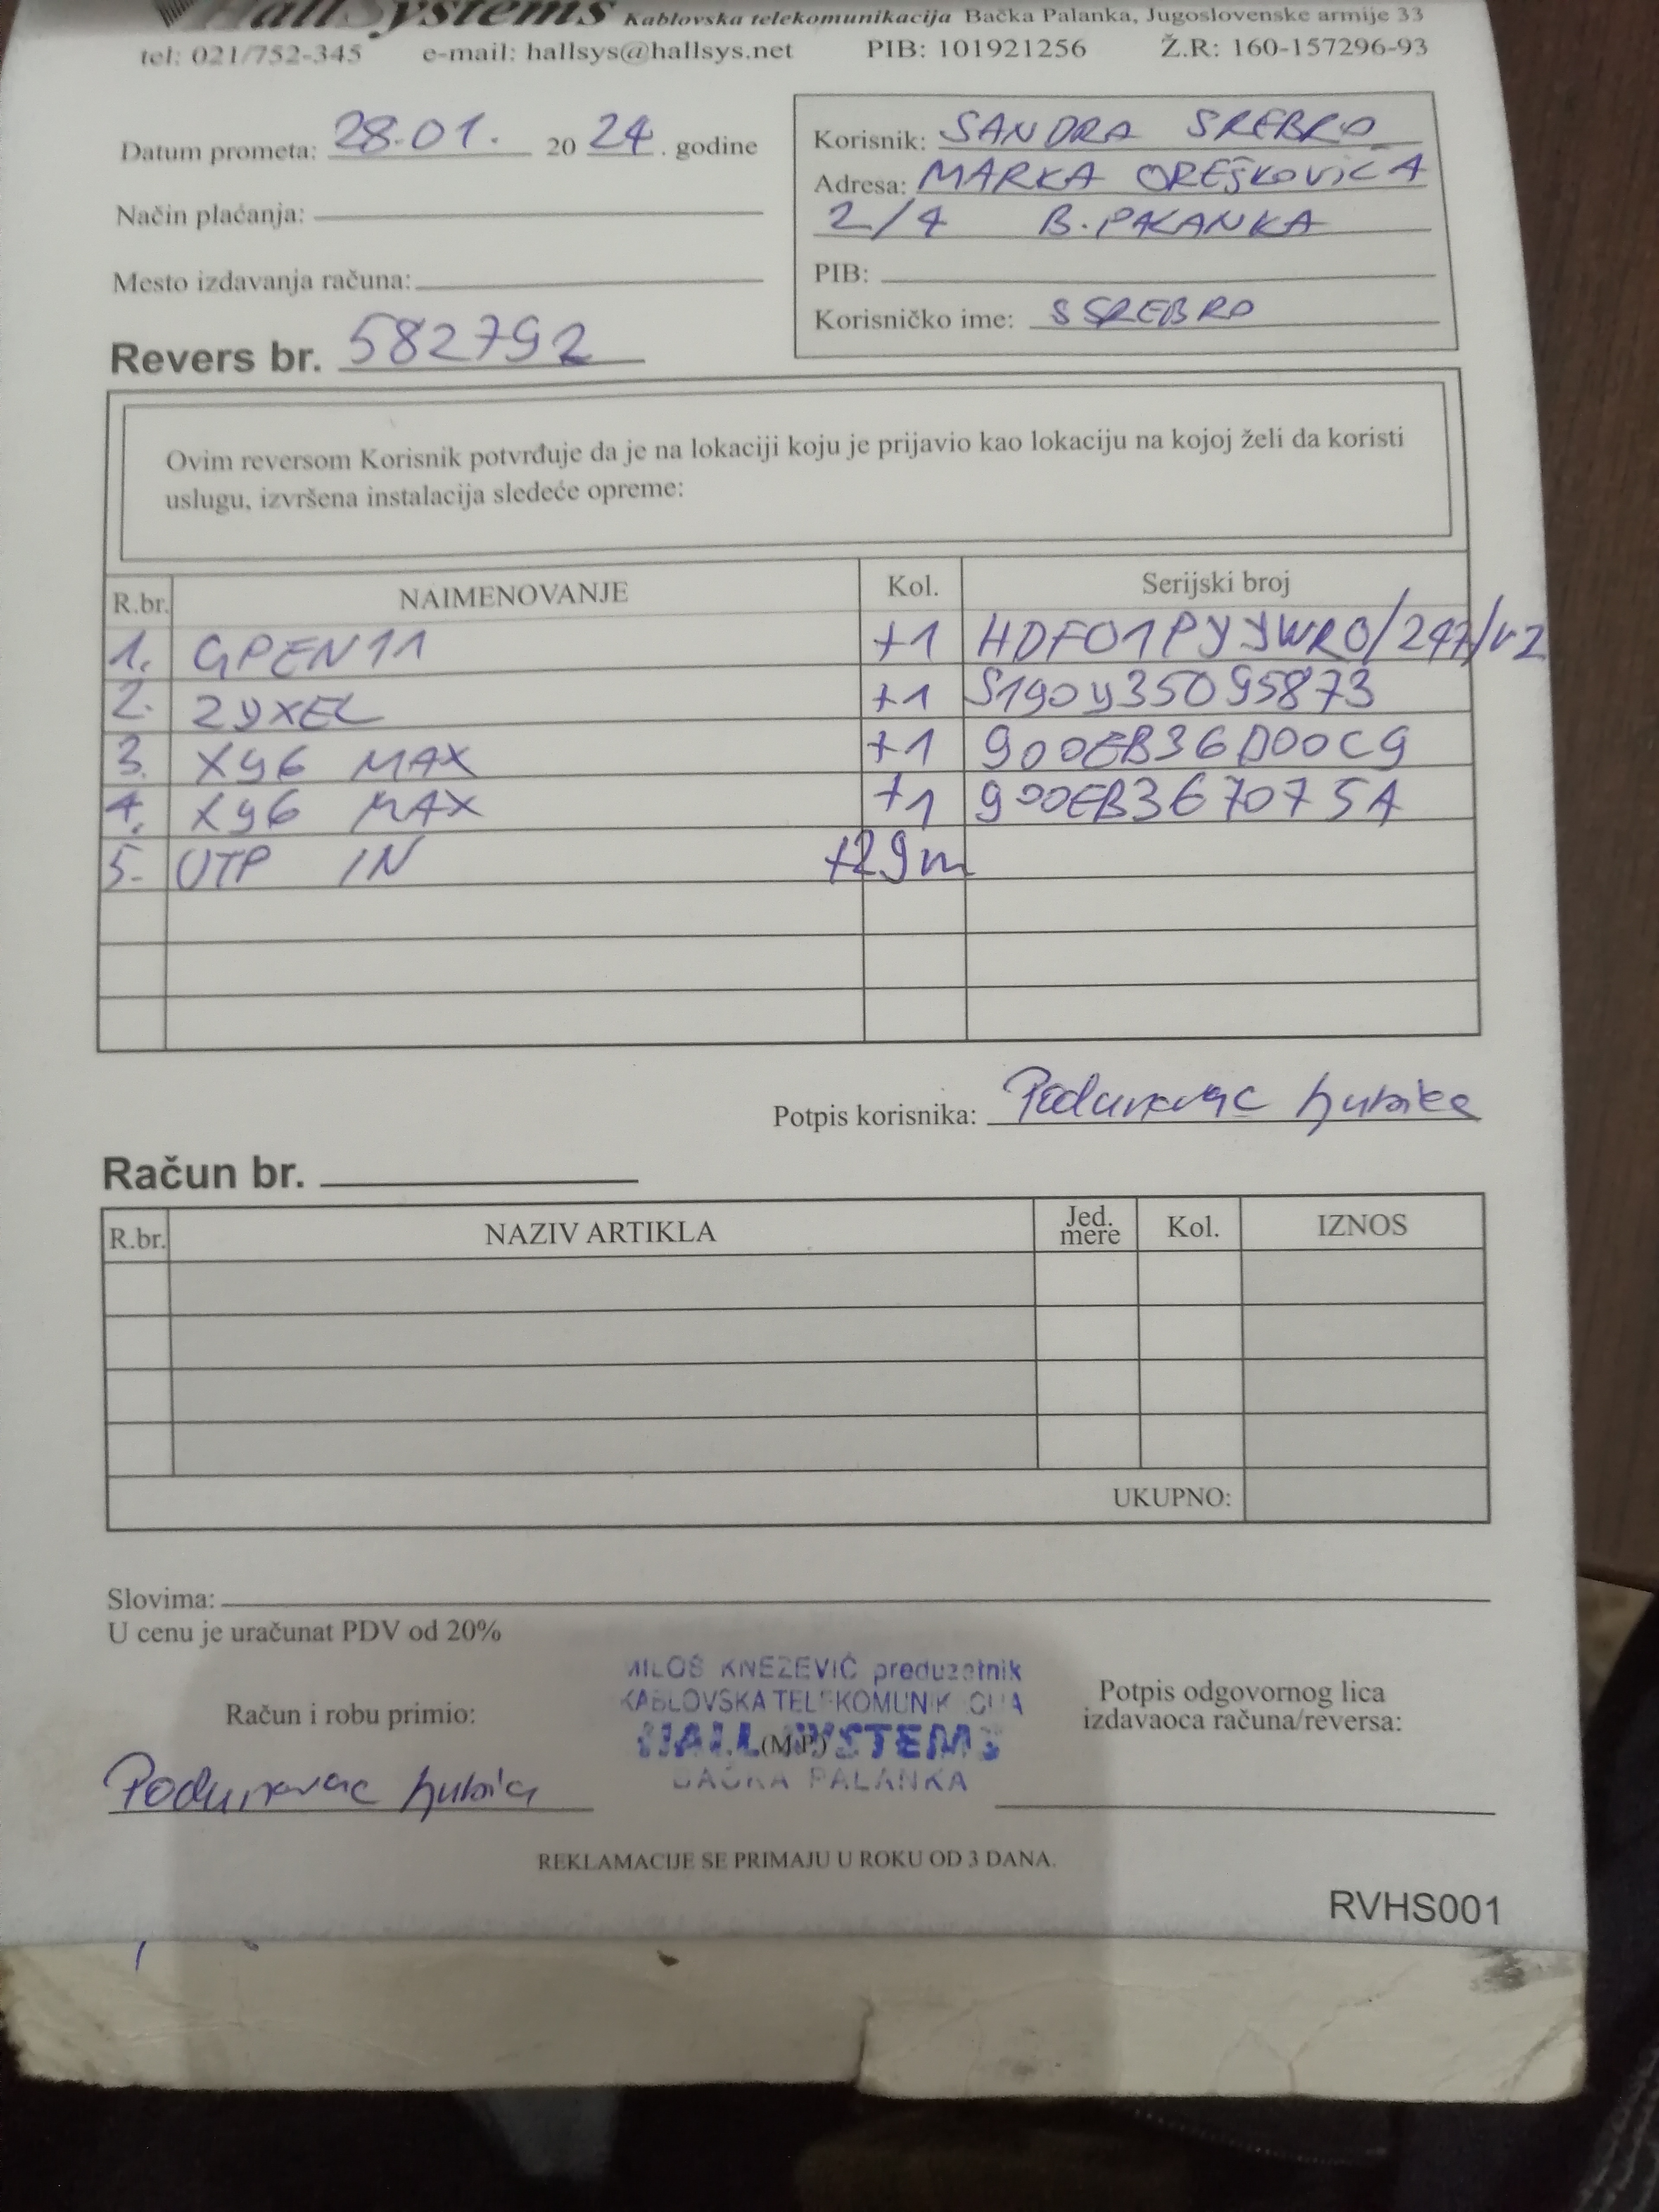 HallSystems Kablovska telekomunikacija Bačka Palanka, Jugoslovenske armije 33
tel: 021/752-345 e-mail: hallsys@hallsys.net PIB: 101921256 Ž.R: 160-157296-93
Datum prometa: 28.01. 20 24. godine
Način plaćanja:
Mesto izdavanja računa:
Revers br. 582792
Korisnik: SANDRA SREBRO
Adresa: MARKA OREŠKOVIĆA
2/4 B. PALANKA
PIB:
Korisničko ime: SSREBRO
Ovim reversom Korisnik potvrđuje da je na lokaciji koju je prijavio kao lokaciju na kojoj želi da koristi
uslugu, izvršena instalacija sledeće opreme:
R.br. NAIMENOVANJE Kol. Serijski broj
1. GPEN11 +1 HDF01PYYWR0/247/r2
2. ZYXEL +1 S190Y35095873
3. X96 MAX +1 900EB36D00C9
4. X96 MAX +1 900EB367075A
5. UTP IN +29m
Potpis korisnika: Podunavac Ljubica
Račun br.
R.br. NAZIV ARTIKLA Jed. mere Kol. IZNOS
UKUPNO:
Slovima:
U cenu je uračunat PDV od 20%
MILOŠ KNEZEVIĆ preduzetnik
KABLOVSKA TELEKOMUNIKACIJA
HALL SYSTEMS
(M.P.)
BAČKA PALANKA
Račun i robu primio:
Podunavac
Potpis odgovornog lica
izdavaoca računa/reversa:
REKLAMACIJE SE PRIMAJU U ROKU OD 3 DANA.
RVHS001